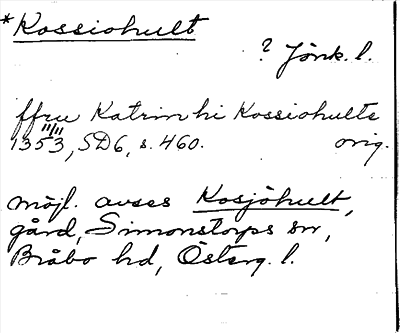 *Kossiohult
? Jönk. l.
ffru Katrin hi Kossiohulte
1353 11/11, SD6, s. 460. orig.
möjl. avses Kosjöhult,
gård, Simonstorps sn,
Bråbo hd, Österg. l.